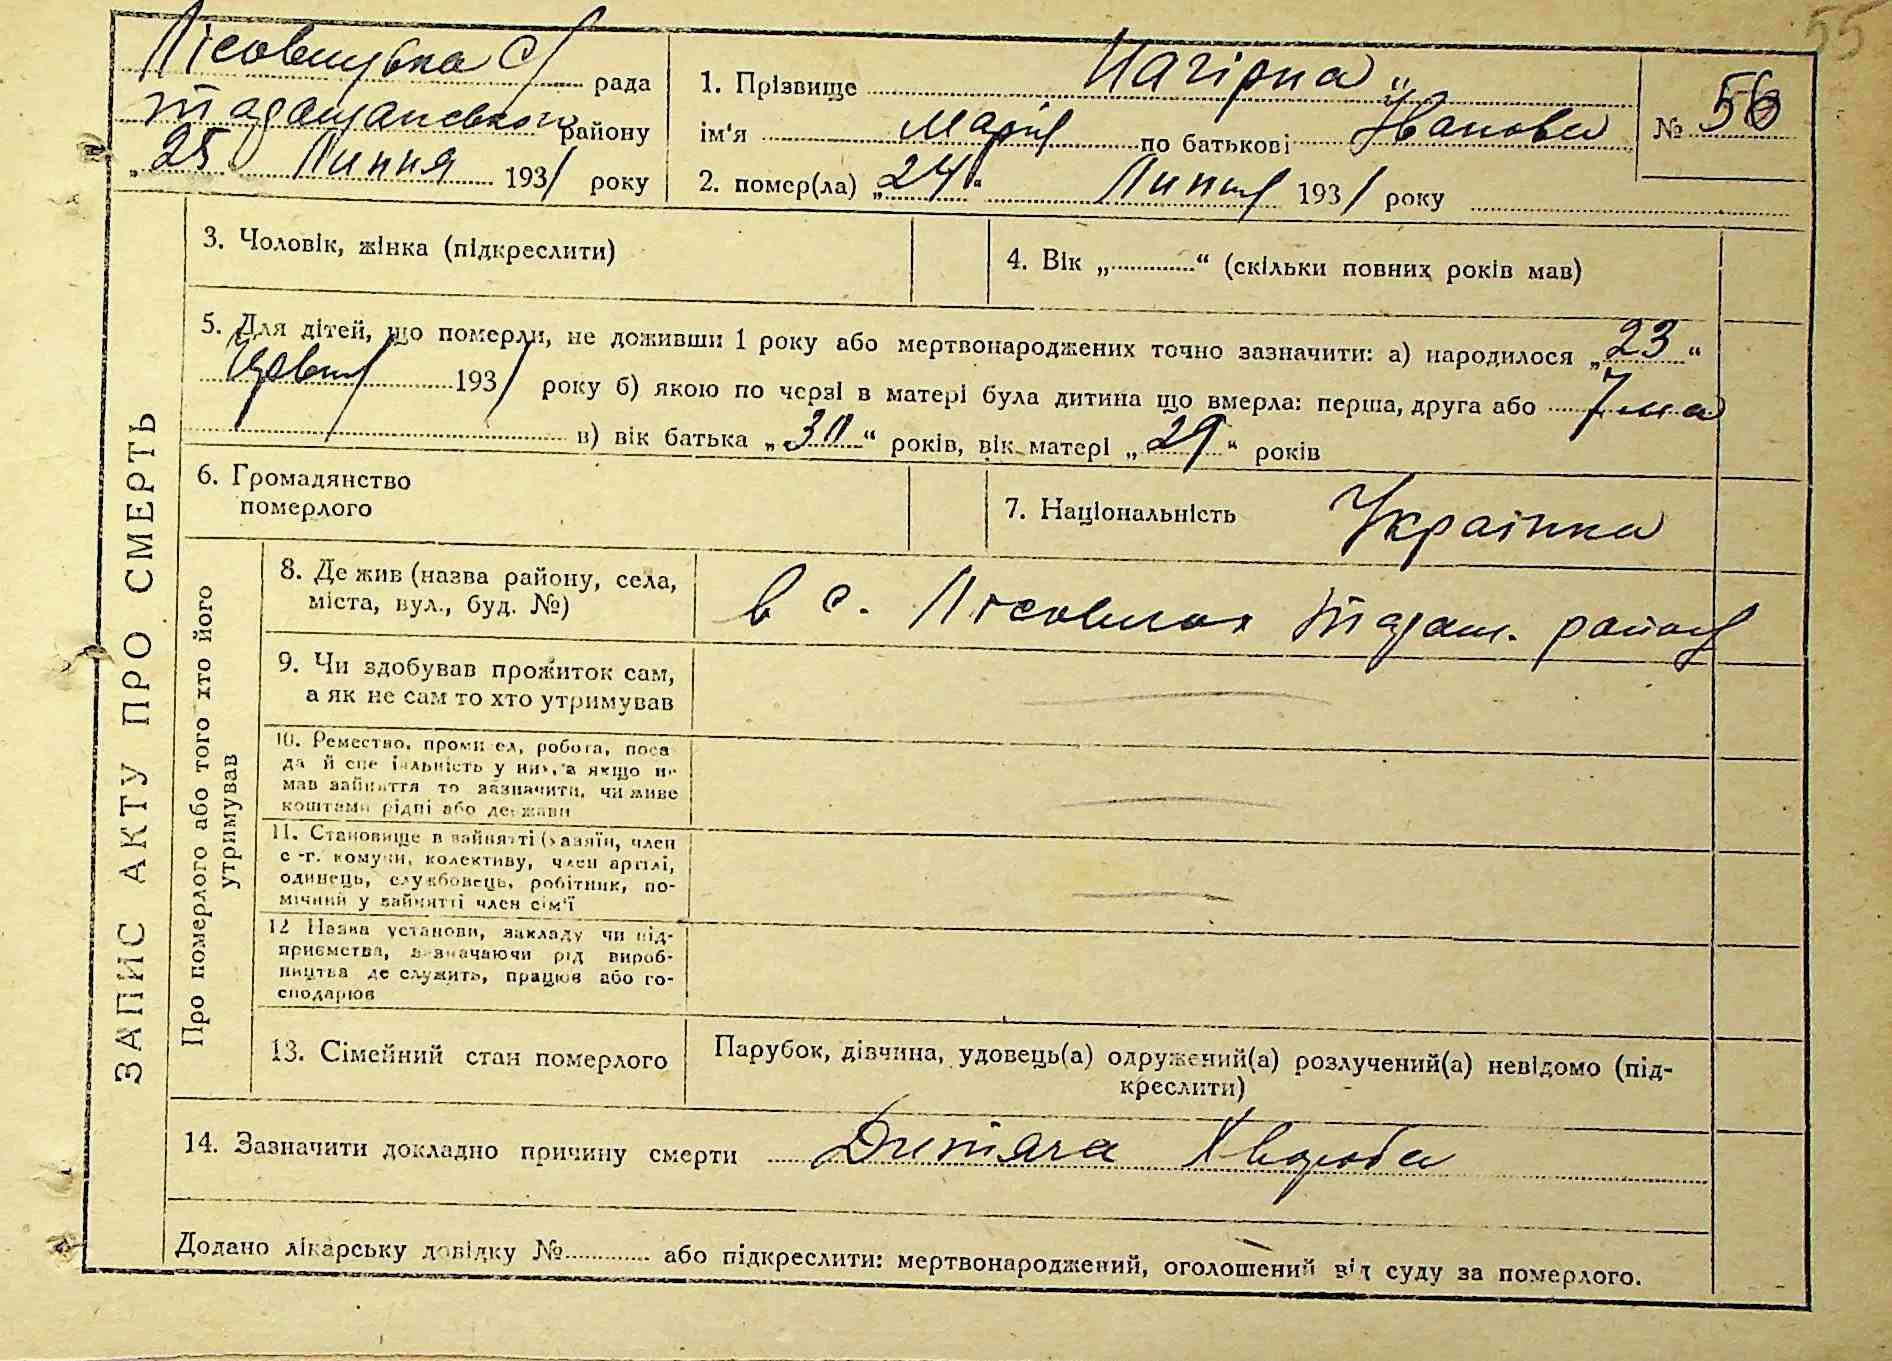 55
Лісовицька С/ рада
Таращанського району
„25 Липня 1931 року
1. Прізвище Нагірна
ім'я Марія по батькові Іванови
№ 56
2. помер(ла) „24“ Липня 1931 року
3. Чоловік, жінка (підкреслити)
4. Вік „............“ (скільки повних років мав)
5. Для дітей, що померли, не доживши 1 року або мертвонароджених точно зазначити: а) народилося „23“
193/ року б) якою по черзі в матері була дитина що вмерла: перша, друга або 7ма
в) вік батька „30“ років, вік матері „29“ років
6. Громадянство
померлого
7. Національність Українка
ЗАПИС АКТУ ПРО СМЕРТЬ
Про померлого або того хто його
утримував
8. Де жив (назва району, села,
міста, вул., буд. №)
в с. Лісовичах Таращ. району
9. Чи здобував прожиток сам,
а як не сам то хто утримував
10. Ремество, промисел, робота, поса
да й спеціальність у них, а якщо не
мав зайняття то зазначити, чи живе
коштами рідні або держави
11. Становище в зайнятті (хазяїн, член
с-г. комуни, колективу, член артілі,
одинець, службовець, робітник, по-
мічний у зайнятті член сім'ї
12 Назва установи, закладу чи під-
приємства, зазначаючи рід вироб-
ництва де служить, працює або го-
сподарює
13. Сімейний стан померлого
Парубок, дівчина, удовець(а) одружений(а) розлучений(а) невідомо (під-
креслити)
14. Зазначити докладно причину смерти Дитяча Хвороба
Додано лікарську довідку №............ або підкреслити: мертвонароджений, оголошений від суду за померлого.